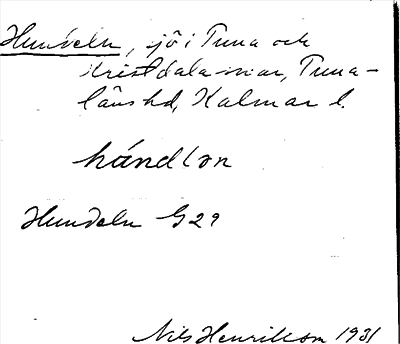 Hundeln, sjö i Tuna och
Kristdala snar, Tuna-
läns hd, Kalmar l.
håndlon
Hundeln G29
Nils Henrikson 1931